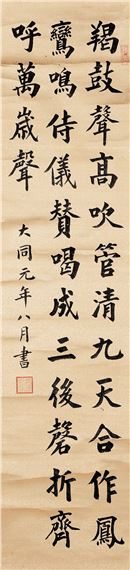 羯鼓聲高吹管清九天合作鳳
鸞鳴侍儀贊喝成三後磬折齊
呼萬歲聲
大同元年八月書